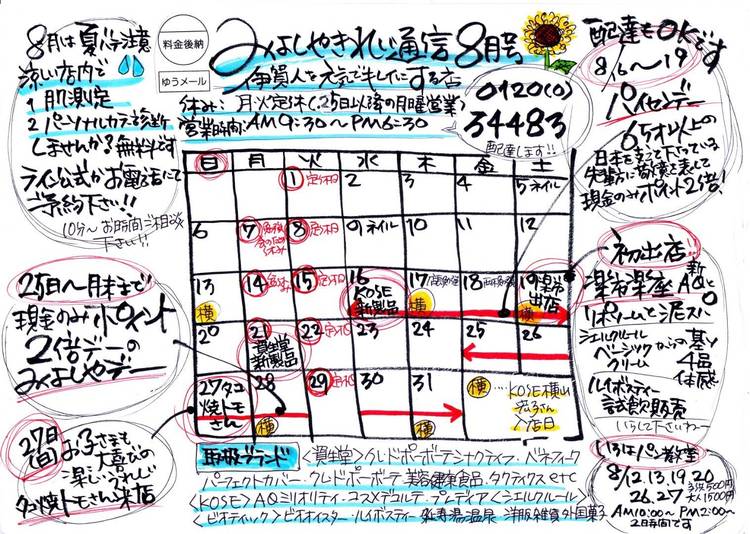 料金後納
ゆうメール
みよしやきれい通信8月号
伊賀人を元気でキレイにする店
休み:月・火定休(25日以降の月曜営業)
営業時間:AM9:30〜PM6:30
0120(0)
34483
配達します!!
8月は夏バテ注意
涼しい店内で
1 肌測定
2 パーソナルカラー診断
しませんか?無料です
ライン公式かお電話にて
ご予約下さい!!
10分〜お時間ご相談
下さい!!
配達もOKです
8/16〜19
パイセンデー
65才以上の
日本を支えて下さっている
先輩方に敬意を表して
現金のみポイント2倍!
日 月 火 水 木 金 土
1 定休日 2 3 4 5 ネイル
6 7 8 定休日 9 ネイル 10 11 12
13 14 15 定休日 16 17 18 19 楽市出店
KOSE新製品
横 横 横
20 21 22 定休 23 24 25 26
資生堂新製品
27 タコ焼トモさん 28 29 定休 30 31
横 横
横 …KOSE横山
さん
入店日
25日〜月末まで
現金のみポイント
2倍デーの
みよしやデー
27日(日)
お子さまも
大喜びの
楽しいうれしい
タコ焼トモさん来店
初出店!!
楽市楽座
新AQと
リポソームと泥スパ
シェルクルール
ベーシックならの基本
クリーム 4品体感
ハイポスティー
試飲販売
いろはパン教室
8/12.13.19.20
26.27
大人1500円
AM10:00〜PM2:00〜
2時間です
取扱ブランド
<資生堂>クレドポーボーテ シナクティフ・ベネフィーク
パーフェクトカバー・クレドポーボーテ 美容健康食品・タクティクスetc
<KOSE>AQミリオリティ・コスメデコルテ・プレディア<シェルクルール>
<ビオティック>ビオオイスター・ルイボスティー 延寿湯温泉 洋服雑貨 外国菓子